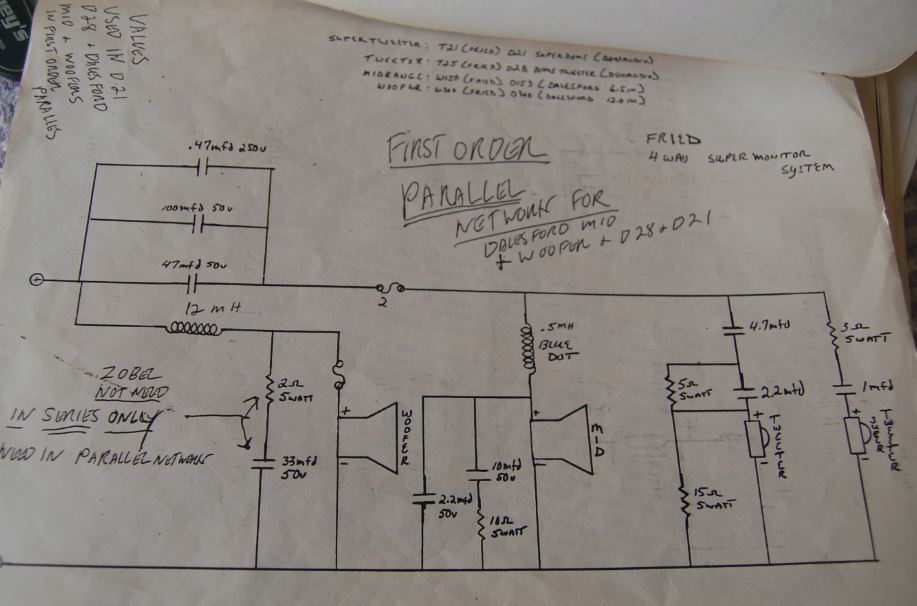 ey's
VALUES
USED IN D21
D28 + DALESFORD
MID + WOOFERS
IN FIRST ORDER
PARALLES
SUPERTWEETER: T21 (FRIED) D21 SUPERDOME (DYNAUDIO)
TWEETER: T25 (FRIED) D28 DOME TWEETER (DYNAUDIO)
MIDRANGE: W150 (FRIED) D153 (DALESFORD 6.5 in)
WOOFER: W300 (FRIED) D300 (DALESFORD 12.0 in)
FIRST ORDER
PARALLEL
NETWORK FOR
DALESFORD MID
+ WOOFER + D28 + D21
FRIED
4 WAY SUPER MONITOR
SYSTEM
.47mfd 250v
100mfd 50v
47mfd 50v
+
12 mH
2
.5MH
BLUE
DOT
4.7mfd
3Ω
5WATT
ZOBEL
NOT NEED
IN SERIES ONLY
NEED IN PARALLEL NETWORK
2Ω
5WATT
33mfd
50v
+
WOOFER
-
2.2mfd
50v
10mfd
50v
10Ω
5WATT
+
MID
-
5Ω
5WATT
2.2mfd
15Ω
5WATT
+
-
1mfd
+
-